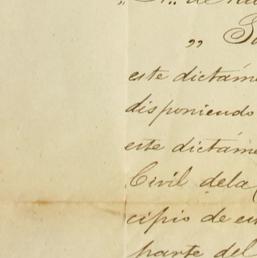 de
„ S
este dictám
disponiendo
este dictám
Civil dela
cipio de
parte del